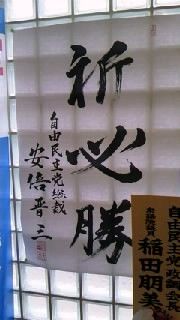 祈必勝
自由民主党総裁
安倍晋三
自由民主党
稲田朋美